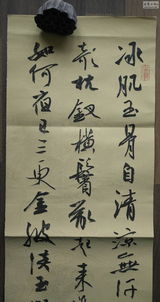 冰肌玉骨自清涼無汗
欹枕釵橫鬢亂起來
如何夜已三更金波淡玉